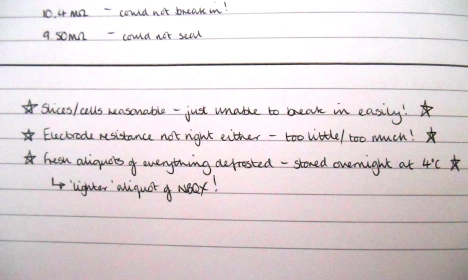 10.4MΩ - could not break in!
9.50MΩ - could not seal
☆ Slices/cells reasonable - just unable to break in easily! ☆
☆ Electrode resistance not right either - too little/too much! ☆
☆ Fresh aliquots of everything defrosted - stored overnight at 4°C ☆
↳ 'lighter' aliquot of NBQX!